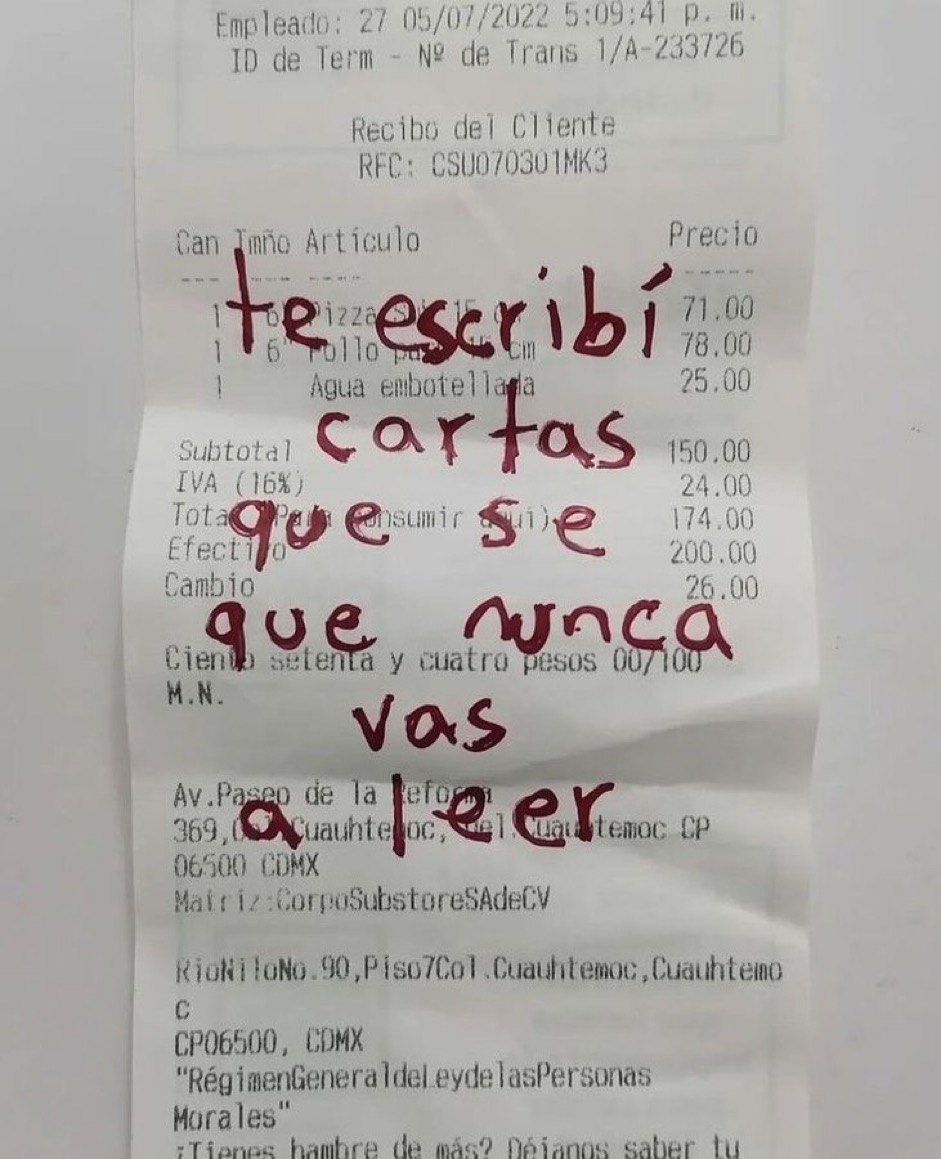 Empleado: 27 05/07/2022 5:09:41 p. m.
ID de Term - Nº de Trans 1/A-233726
Recibo del Cliente
RFC: CSU070301MK3
Can Tmño Artículo Precio
--- ---- ---- -----
te escribí
1 6" Pizza 15 71.00
1 6" Pollo cm 78.00
1 Agua embotellada 25.00
cartas
Subtotal 150.00
IVA (16%) 24.00
que se
Total (Para consumir aquí) 174.00
Efectivo 200.00
Cambio 26.00
que nunca
Ciento setenta y cuatro pesos 00/100
M.N.
vas
Av.Paseo de la Reforma
a leer
369, Cuauhtemoc, Del.Cuauhtemoc CP
06500 CDMX
Matriz:CorpoSubstoreSAdeCV
RioNiloNo.90,Piso7Col.Cuauhtemoc,Cuauhtemo
c
CP06500, CDMX
"RégimenGeneraldeLeydelasPersonas
Morales"
¿Tienes hambre de más? Déjanos saber tu